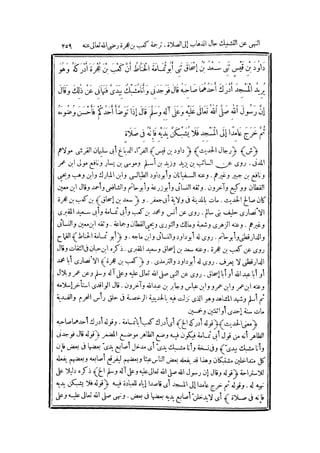 النهى عن التشبيك حال الذهاب إلى الصلاة . ترجمة كعب بن عجرة رضى الله تعالى عنه ٢٥٩
دَاوُدَ بْنِ قَيْسٍ ثَنِى سَعْدُ بْنُ إِسْحَاقَ ثَنِى أَبُو ثُمَامَةَ الْحَنَّاطُ أَنَّ كَعْبَ بْنَ عُجْرَةَ أَدْرَكَهُ وَهُوَ
يُرِيدُ الْمَسْجِدَ أَدْرَكَ أَحَدُهُمَا صَاحِبَهُ قَالَ فَوَجَدَنِى وَأَنَا مُشَبِّكٌ بِيَدَىَّ فَنَهَانِى عَنْ ذَلِكَ وَقَالَ
إِنَّ رَسُولَ اللهِ صَلَّى اللهُ تَعَالَى عَلَيْهِ وَعَلَى آلِهِ وَسَلَّمَ قَالَ إِذَا تَوَضَّأَ أَحَدُكُمْ فَأَحْسَنَ وُضُوءَهُ
ثُمَّ خَرَجَ عَامِدًا إِلَى الْمَسْجِدِ فَلَا يُشَبِّكَنَّ يَدَيْهِ فَإِنَّهُ فِى صَلَاةٍ
﴿ش﴾ ﴿رجال الحديث﴾ ﴿داود بن قيس﴾ الفراء الدباغ أبى سليمان القرشى مولاهم
المدنى . روى عن السائب بن يزيد وزيد بن أسلم وموسى بن يسار ونافع مولى ابن عمر
ونافع بن جبير وغيرهم . وعنه السفيانان وأبو داود الطيالسى وابن المبارك وابن وهب ويحيى
القطان ووكيع وآخرون . وثقه النسائى وأبو زرعة وأبو حاتم والشافعى وأحمد وقال ابن معين
كان صالح الحديث . مات بالمدينة فى ولاية أبى جعفر . و ﴿سعد بن إسحاق﴾ بن كعب بن عجرة
الأنصارى حليف بنى سالم . روى عن أنس ومحمد بن كعب وأبى ثمامة وأبى سعيد المقبرى
وغيرهم . وعنه الزهرى وشعبة ومالك والثورى ويحيى القطان وجماعة . وثقه ابن معين والنسائى
والدارقطنى وأبو حاتم . روى له أبو داود والنسائى وابن ماجه . و ﴿أبو ثمامة الحناط﴾ القماح
روى عن كعب بن عجرة . وعنه سعد بن إسحاق وسعيد المقبرى . ذكره ابن حبان فى الثقات وقال
الدارقطنى لا يعرف . روى له أبو داود والترمذى . و ﴿كعب بن عجرة﴾ الأنصارى أبا محمد
أو أبا عبد الله أو أبا إسحاق . روى عن النبى صلى الله تعالى عليه وعلى آله وسلم وعن عمر وبلال
وعنه ابن عمر وابن عمرو وابن عباس وجابر بن عبد الله وآخرون . قال الواقدى استأخر إسلامه
ثم أسلم وشهد المشاهد وهو الذى نزلت فيه بالحديبية الرخصة فى حلق رأس المحرم والفدية
مات سنة إحدى أو اثنتين وخمسين
﴿معنى الحديث﴾ ﴿قوله أدركه الخ﴾ أى أدرك كعب أبا ثمامة . وقوله أدرك أحدهما صاحبه
الظاهر أنه من قول أبى ثمامة فيكون فيه وضع الظاهر موضع المضمر ﴿قوله قال فوجدنى
وأنا مشبك بيدىّ﴾ وفى نسخة وأنا مشبك يدىّ أى مدخل أصابع يدىّ بعضها فى بعض فإن
كل متداخلين مشتبكان وهذا قد يفعله بعض الناس عبثا وبعضهم ليفرقع أصابعه وبعضهم يفعله
للاستراحة ﴿قوله وقال إن رسول الله صلى الله تعالى عليه وعلى آله وسلم الخ﴾ ذكره دليلا على
نهيه له . وقوله ثم خرج عامدا إلى المسجد أى قاصدا إياه للعبادة فيه ﴿قوله فلا يشبكن يديه
فإنه فى صلاة﴾ أى لا يدخلن أصابع يديه بعضها فى بعض . ونهى صلى الله تعالى عليه وعلى